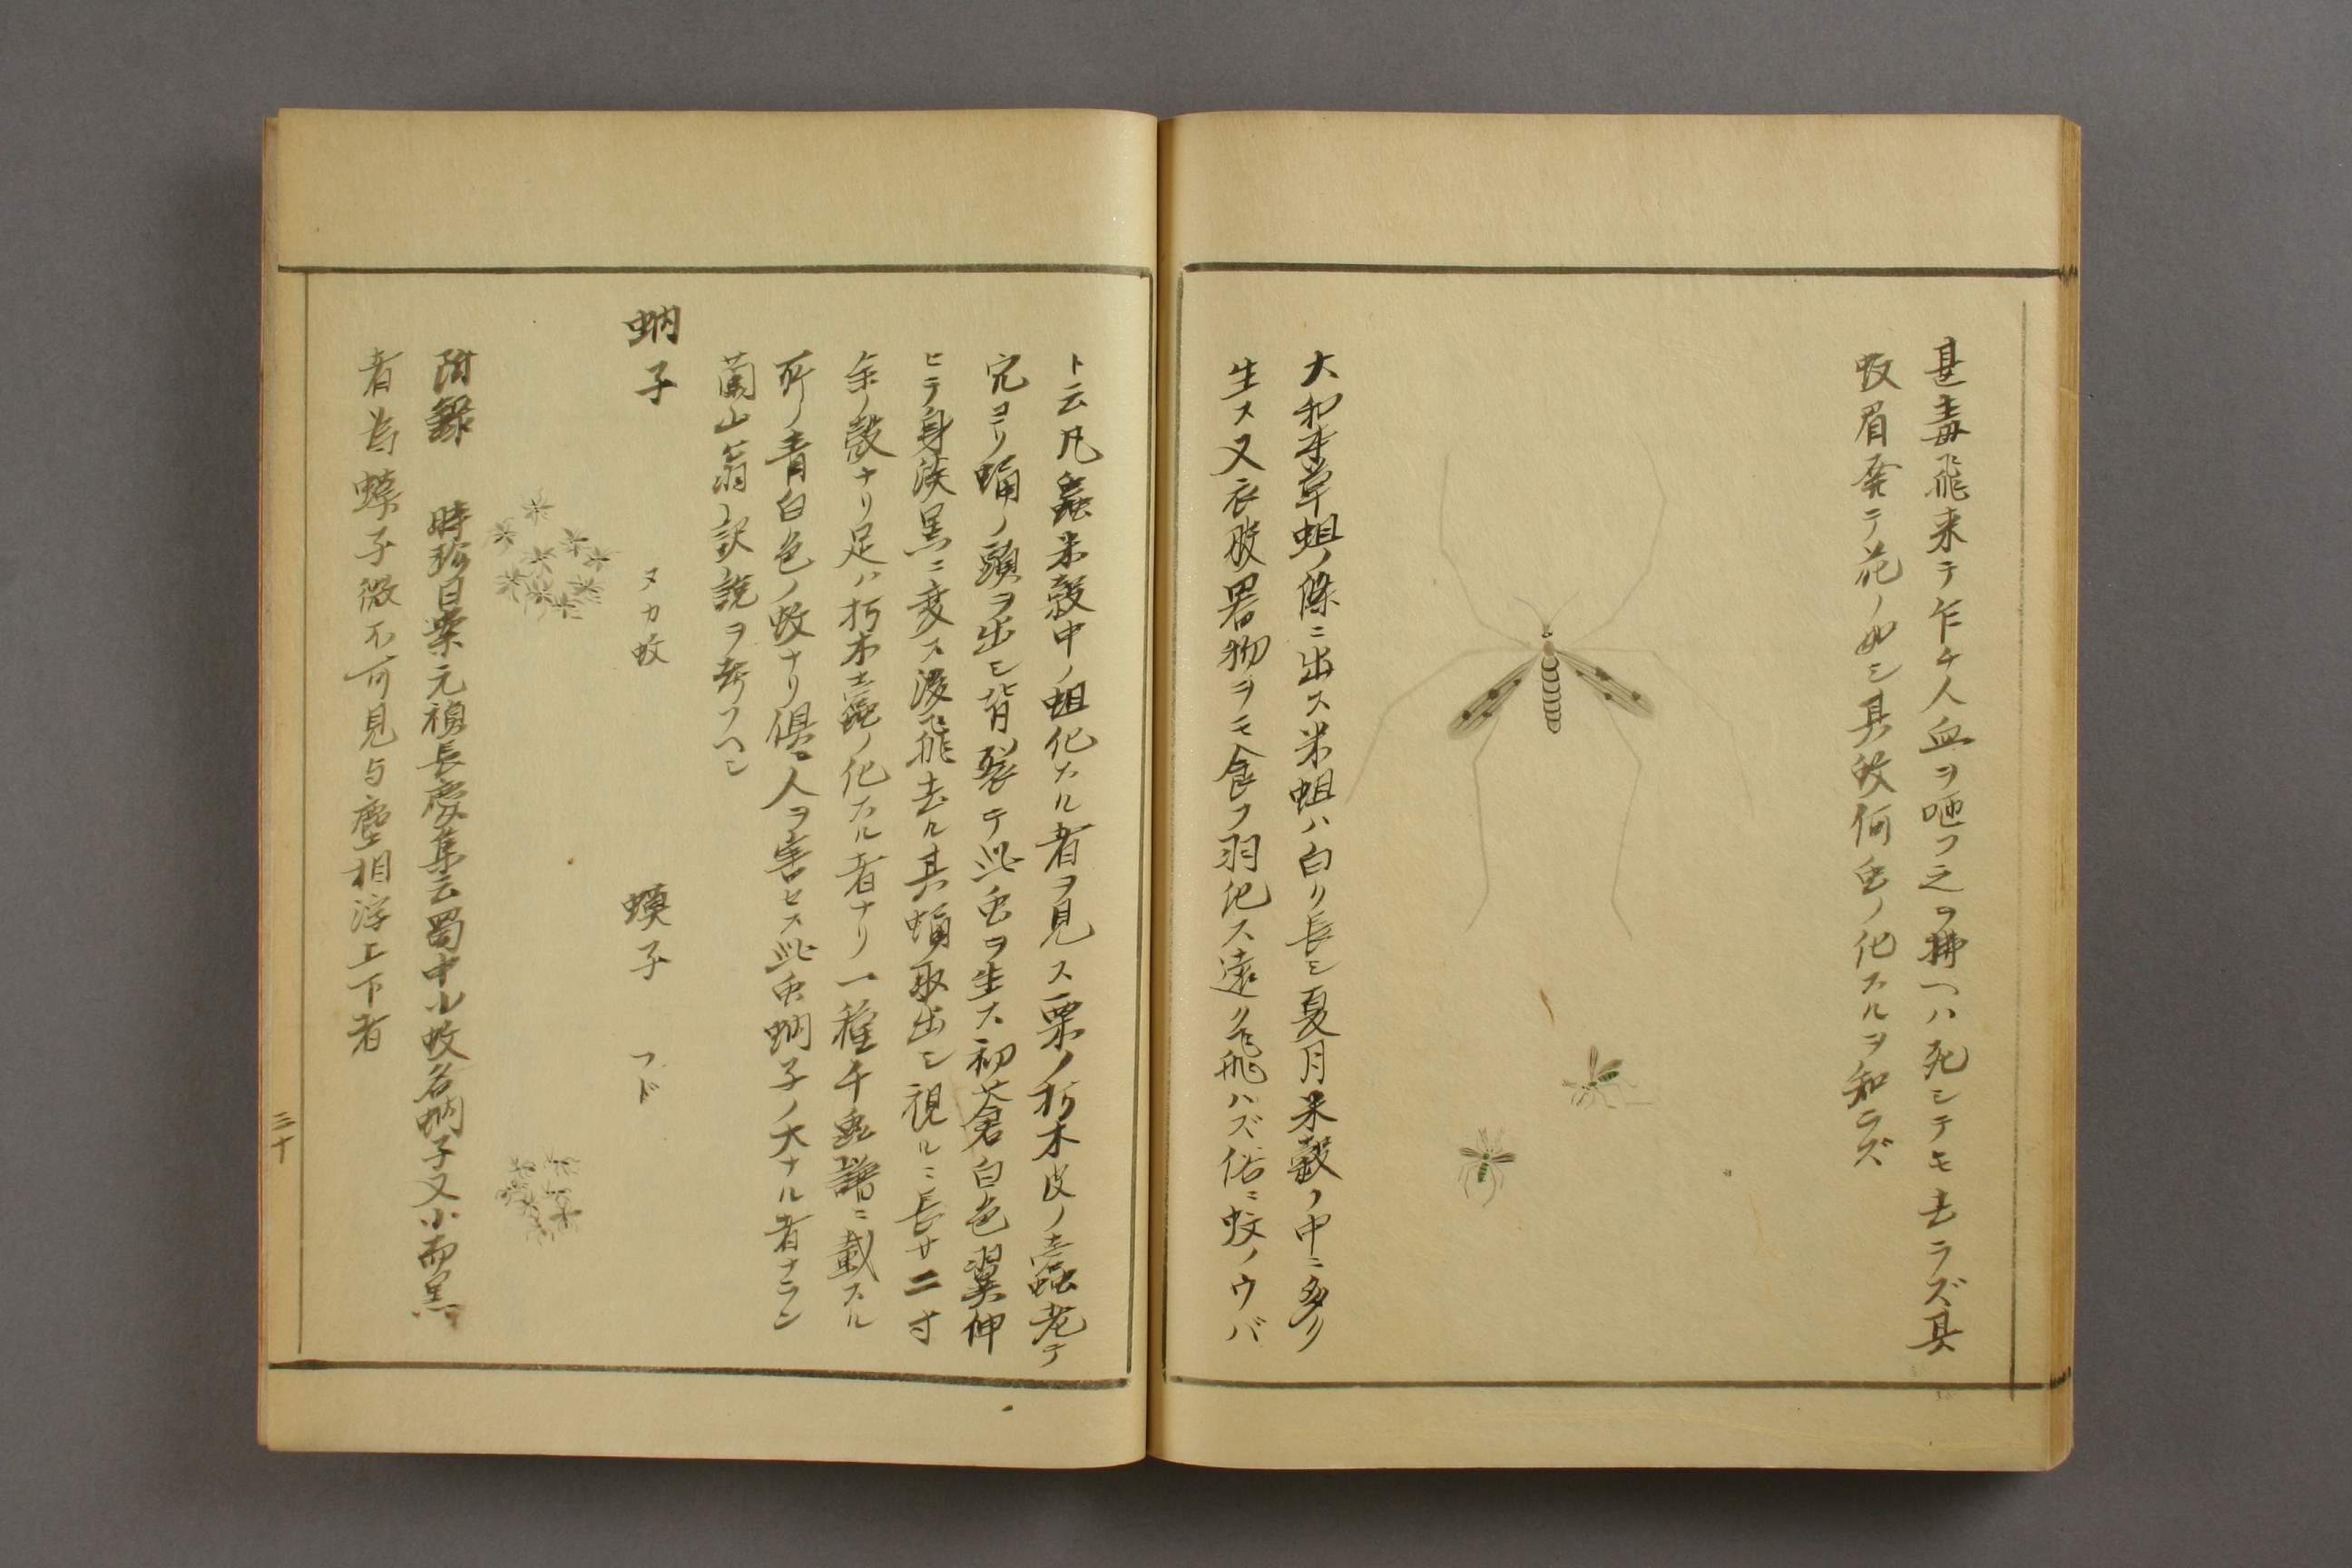 甚毒飛来テ乍チ人血ヲ咂フ之ヲ拂ヘハ死シテモ去ラズ其
蚊眉・テ花ノ如シ其蚊何虫ノ化スルヲ知ラズ
大和本草蛆ノ條ニ出ス米蛆ハ白ク長シ夏月米穀ノ中ニ多ク
生ス又衣服畧物ヲモ食フ羽化ス遠ク飛ハズ俗ニ蚊ノウバ
ト云凡蟲米穀中ノ蛆化スル者ヲ見ス栗ノ朽木皮ノ蠹老テ
穴ヨリ蛹ノ頭ヲ出シ背裂テ此虫ヲ生ス初蒼白色翼伸
ヒテ身淡黒ニ変ス後飛去ル其蛹取出シ視ルニ長サ二寸
余ノ殻ナリ足ハ朽木蠹ノ化スル者ナリ一種千蟲譜ニ載スル
所ノ青白色ノ蚊ナリ倶ニ人ヲ害セス此虫蚋子ノ大ナル者ナラン
蘭山翁ノ訳説ヲ考フヘシ
蚋子 ヌカ蚊 蟆子 フド
附録 時珍曰案元稹長慶集云蜀中小蚊名蚋子又小而黒
者為蟆子微不可見与塵相浮上下者
三十